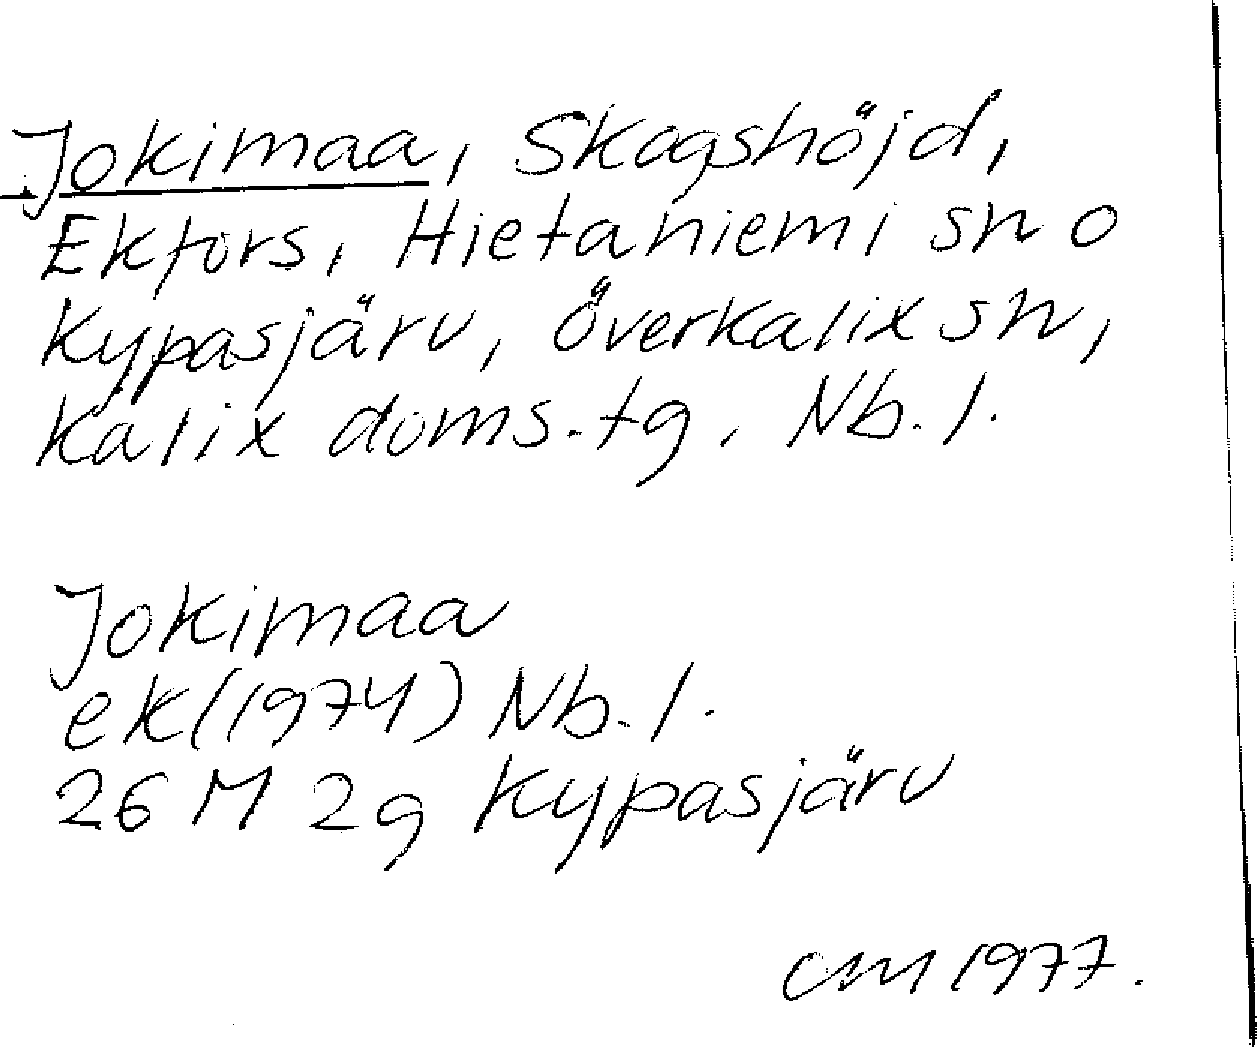 Jokimaa, Skogshöjd,
Ekfors, Hietaniemi sn o
Kypasjärv, Överkalix sn,
Kalix doms.tg, Nb.l.
Jokimaa
ek(1974) Nb.l.
26 M 2g Kypasjärv
CM 1977.